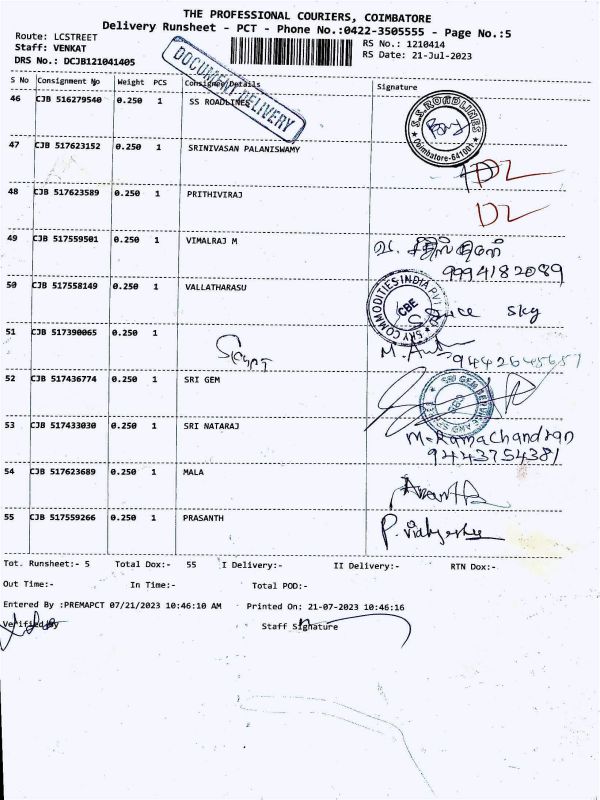 THE PROFESSIONAL COURIERS, COIMBATORE
Delivery Runsheet - PCT - Phone No.:0422-3505555 - Page No.:5
Route: LCSTREET
Staff: VENKAT
DRS No.: DCJB121041405
RS No.: 1210414
RS Date: 21-Jul-2023
DOCUMENT DELIVERY
S No Consignment No Weight PCS Consignee Details Signature
46 CJB 516279540 0.250 1 SS ROADLINES
S.S. ROADLINES
Coimbatore-641001
47 CJB 517623152 0.250 1 SRINIVASAN PALANISWAMY
48 CJB 517623589 0.250 1 PRITHIVIRAJ
49 CJB 517559501 0.250 1 VIMALRAJ M
9994182089
50 CJB 517558149 0.250 1 VALLATHARASU
SKY COMMODITIES INDIA PVT
CBE
sky
51 CJB 517390065 0.250 1
9442645657
52 CJB 517436774 0.250 1 SRI GEM
SRI GEM
53 CJB 517433030 0.250 1 SRI NATARAJ
M. Ramachandran
9443754381
54 CJB 517623689 0.250 1 MALA
55 CJB 517559266 0.250 1 PRASANTH
Tot. Runsheet:- 5 Total Dox:- 55 I Delivery:- II Delivery:- RTN Dox:-
Out Time:- In Time:- Total POD:-
Entered By :PREMAPCT 07/21/2023 10:46:10 AM Printed On: 21-07-2023 10:46:16
Verified By Staff Signature